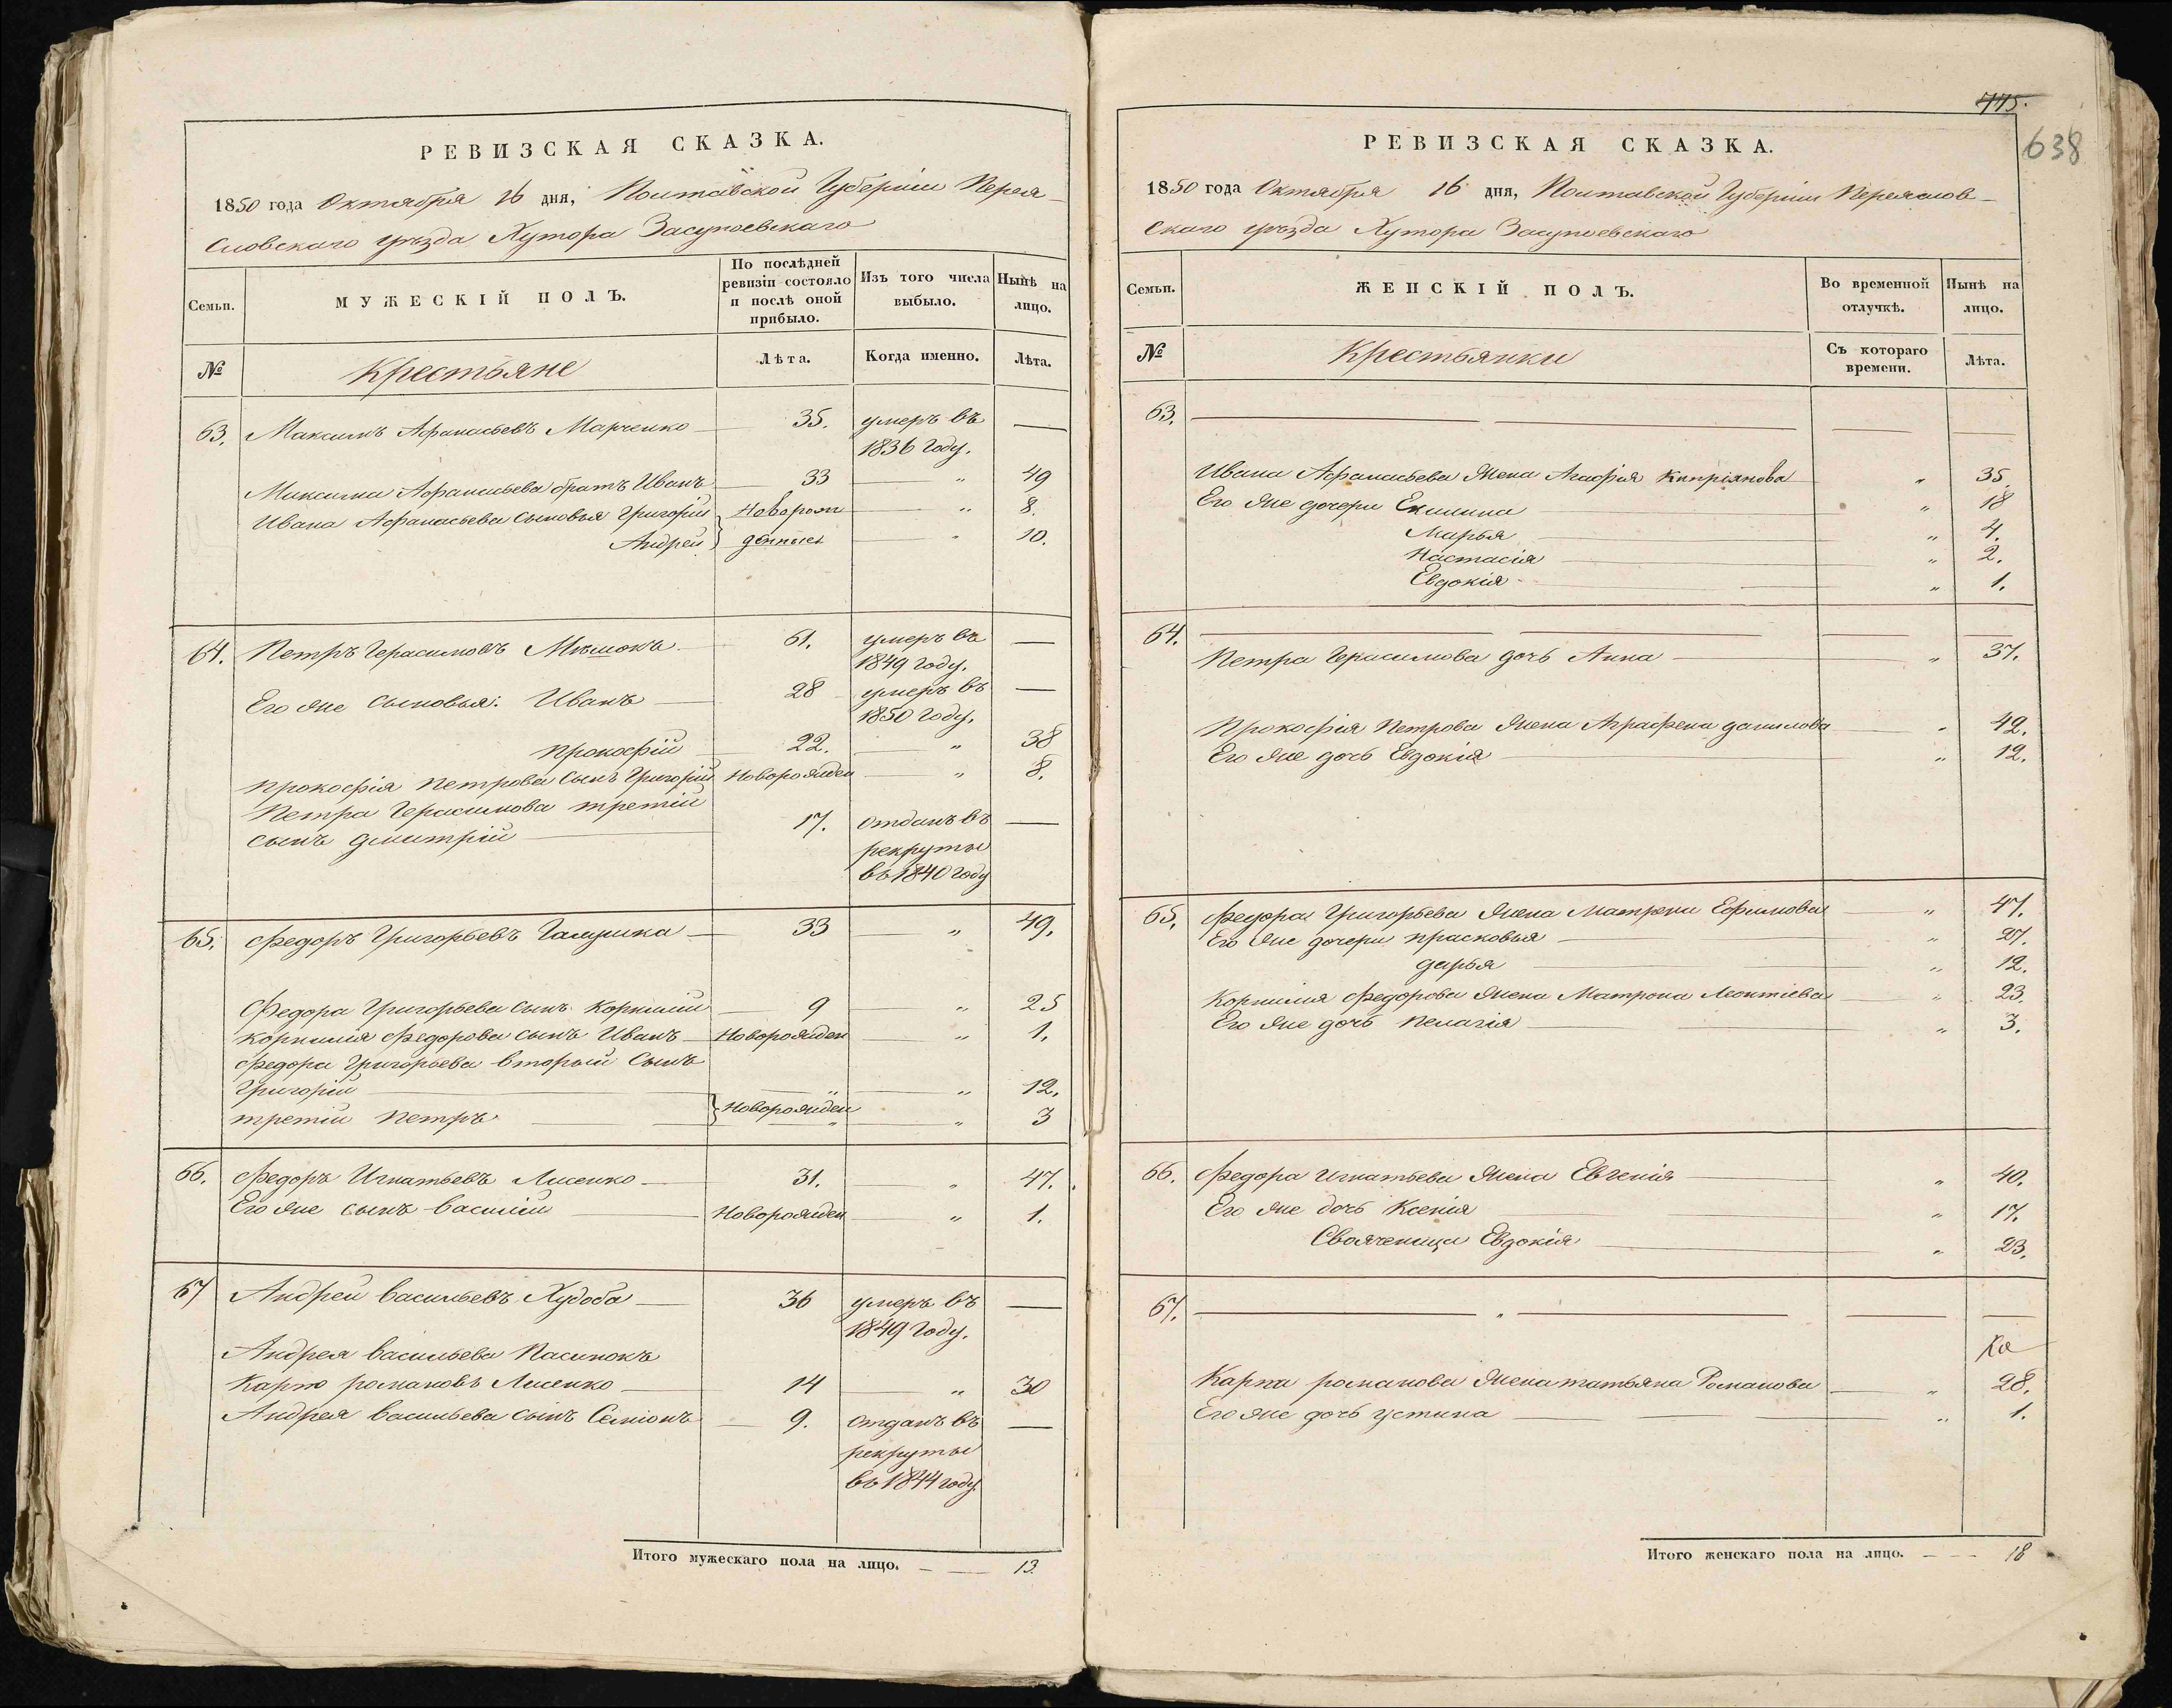 РЕВИЗСКАЯ СКАЗКА.
1850 года Октября 16 дня, Полтавской Губерніи Перея-
словскаго уѣзда Хутора Засупоевскаго
Семьи.
МУЖЕСКІЙ ПОЛЪ.
По послѣдней ревизіи состояло и послѣ оной прибыло.
Изъ того числа выбыло.
Нынѣ на лицо.
№
Крестьяне
Лѣта.
Когда именно.
Лѣта.
63. Максимъ Афанасьевъ Марченко 35. умеръ въ —
1836 году.
Максима Афанасьева братъ Иванъ 33 " 49
Ивана Афанасьева сыновья Григорій Новорож " 8.
Андрей } денные " 10.
64. Петръ Герасимовъ Мѣшокъ 61. умеръ въ —
1849 году.
Его же сыновья: Иванъ 28 умеръ въ —
1850 году.
Прокофій 22. " 38
Прокофія Петрова сынъ Григорій Новорожден " 8.
Петра Герасимова третій
сынъ Дмитрій 17. отданъ въ —
рекруты
въ 1840 году
65. Федоръ Григорьевъ Галушка 33 " 49.
Федора Григорьева сынъ Корнилій 9 " 25
Корнилія Федорова сынъ Иванъ Новорожден " 1.
Федора Григорьева вторый Сынъ
Григорій " " 12.
третій Петръ } Новорожден " " 3
66. Федоръ Игнатьевъ Лисенко 31. " 47.
Его же сынъ Василій Новорожден " 1.
67 Андрей Васильевъ Худоба 36 умеръ въ —
1849 году.
Андрея Васильева Пасинокъ
Карпъ романовъ Лисенко 14 " 30
Андрея Васильева сынъ Семіонъ 9. отданъ въ —
рекруты
въ 1844 году.
Итого мужескаго пола на лицо. — — 13.
775.
638
РЕВИЗСКАЯ СКАЗКА.
1850 года Октября 16 дня, Полтавской Губерніи Переяслов-
скаго уѣзда Хутора Засупоевскаго
Семьи.
ЖЕНСКІЙ ПОЛЪ.
Во временной отлучкѣ.
Нынѣ на лицо.
№
Крестьянки
Съ котораго времени.
Лѣта.
63. —
Ивана Афанасьева Жена Агафія Кипріянова " 35.
Его же дочери " 18
Марья " 4.
Настасія " 2.
Евдокія " 1.
64. —
Петра Герасимова дочь Анна " 37.
Прокофія Петрова жена Аграфена данилова " 42.
Его же дочь Евдокія " 12.
65. Федора Григорьева жена Матрена Ефимова " 47.
Его же дочери прасковья " 27.
дарья " 12.
Корнилія Федорова жена Матрона Леонтіева " 23.
Его же дочь Пелагія " 3.
66. Федора Игнатьева жена Евгенія " 40.
Его же дочь Ксенія " 17.
Свояченица Евдокія " 23.
67. — " —
Карпа романова жена татьяна Романова " 28.
Его же дочь устина " 1.
Итого женскаго пола на лицо. — — 18